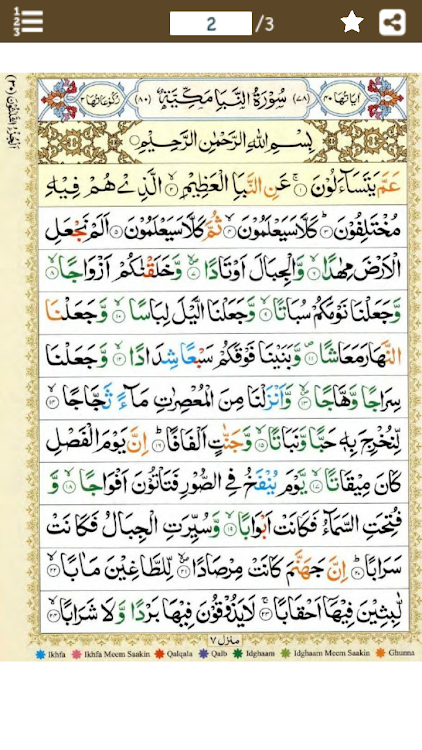 1 2 3
2 /3
اٰيَاتُهَا ٤٠ (٧٨) سُوۡرَةُ النَّبَاِ مَكِّيَّةٌ (٨٠) رُكُوۡعَاتُهَا ٢
بِسۡمِ اللهِ الرَّحۡمٰنِ الرَّحِيۡمِ
عَمَّ يَتَسَآءَلُوۡنَ ۚ‏ ١ عَنِ النَّبَاِ الۡعَظِيۡمِۙ‏ ٢ الَّذِىۡ هُمۡ فِيۡهِ
مُخۡتَلِفُوۡنَؕ‏ ٣ كَلَّا سَيَعۡلَمُوۡنَۙ‏ ٤ ثُمَّ كَلَّا سَيَعۡلَمُوۡنَ‏ ٥ اَلَمۡ نَجۡعَلِ
الۡاَرۡضَ مِهٰدًاۙ‏ ٦ وَّالۡجِبَالَ اَوۡتَادًاۙ‏ ٧ وَّخَلَقۡنٰكُمۡ اَزۡوَاجًاۙ‏ ٨
وَّجَعَلۡنَا نَوۡمَكُمۡ سُبَاتًاۙ‏ ٩ وَّجَعَلۡنَا الَّيۡلَ لِبَاسًاۙ‏ ١٠ وَّجَعَلۡنَا
النَّهَارَ مَعَاشًا ١١ وَّبَنَيۡنَا فَوۡقَكُمۡ سَبۡعًا شِدَادًاۙ‏ ١٢ وَّجَعَلۡنَا
سِرَاجًا وَّهَّاجًاۙ‏ ١٣ وَّاَنۡزَلۡنَا مِنَ الۡمُعۡصِرٰتِ مَآءً ثَجَّاجًاۙ‏ ١٤
لِّنُخۡرِجَ بِهٖ حَبًّا وَّنَبَاتًاۙ‏ ١٥ وَّجَنّٰتٍ اَلۡفَافًاؕ‏ ١٦ اِنَّ يَوۡمَ الۡفَصۡلِ
كَانَ مِيۡقَاتًاۙ‏ ١٧ يَّوۡمَ يُنۡفَخُ فِى الصُّوۡرِ فَتَاۡتُوۡنَ اَفۡوَاجًاۙ‏ ١٨ وَّ
فُتِحَتِ السَّمَآءُ فَكَانَتۡ اَبۡوَابًاۙ‏ ١٩ وَّسُيِّرَتِ الۡجِبَالُ فَكَانَتۡ
سَرَابًاؕ‏ ٢٠ اِنَّ جَهَنَّمَ كَانَتۡ مِرۡصَادًاۙ‏ ٢١ لِّلطَّاغِيۡنَ مَاٰبًاۙ‏ ٢٢
لّٰبِثِيۡنَ فِيۡهَاۤ اَحۡقَابًاۚ‏ ٢٣ لَا يَذُوۡقُوۡنَ فِيۡهَا بَرۡدًا وَّلَا شَرَابًاۙ‏ ٢٤
منزل ٧
Ikhfa Ikhfa Meem Saakin Qalqala Qalb Idghaam Idghaam Meem Saakin Ghunna